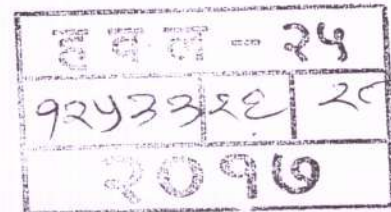 हवल - २५
१२५३३ २६ २८
२०१७